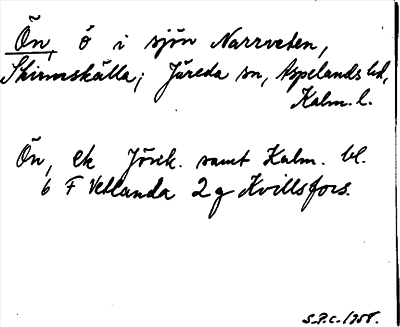 Ön, ö i sjön Narrveten,
Skirnskälla; Järeda sn, Aspelands hd,
Kalm. l.
Ön, ek Jönk. samt Kalm. bl.
6 F Vetlanda 2 g Kvillsfors.
S.P.C. 1958.